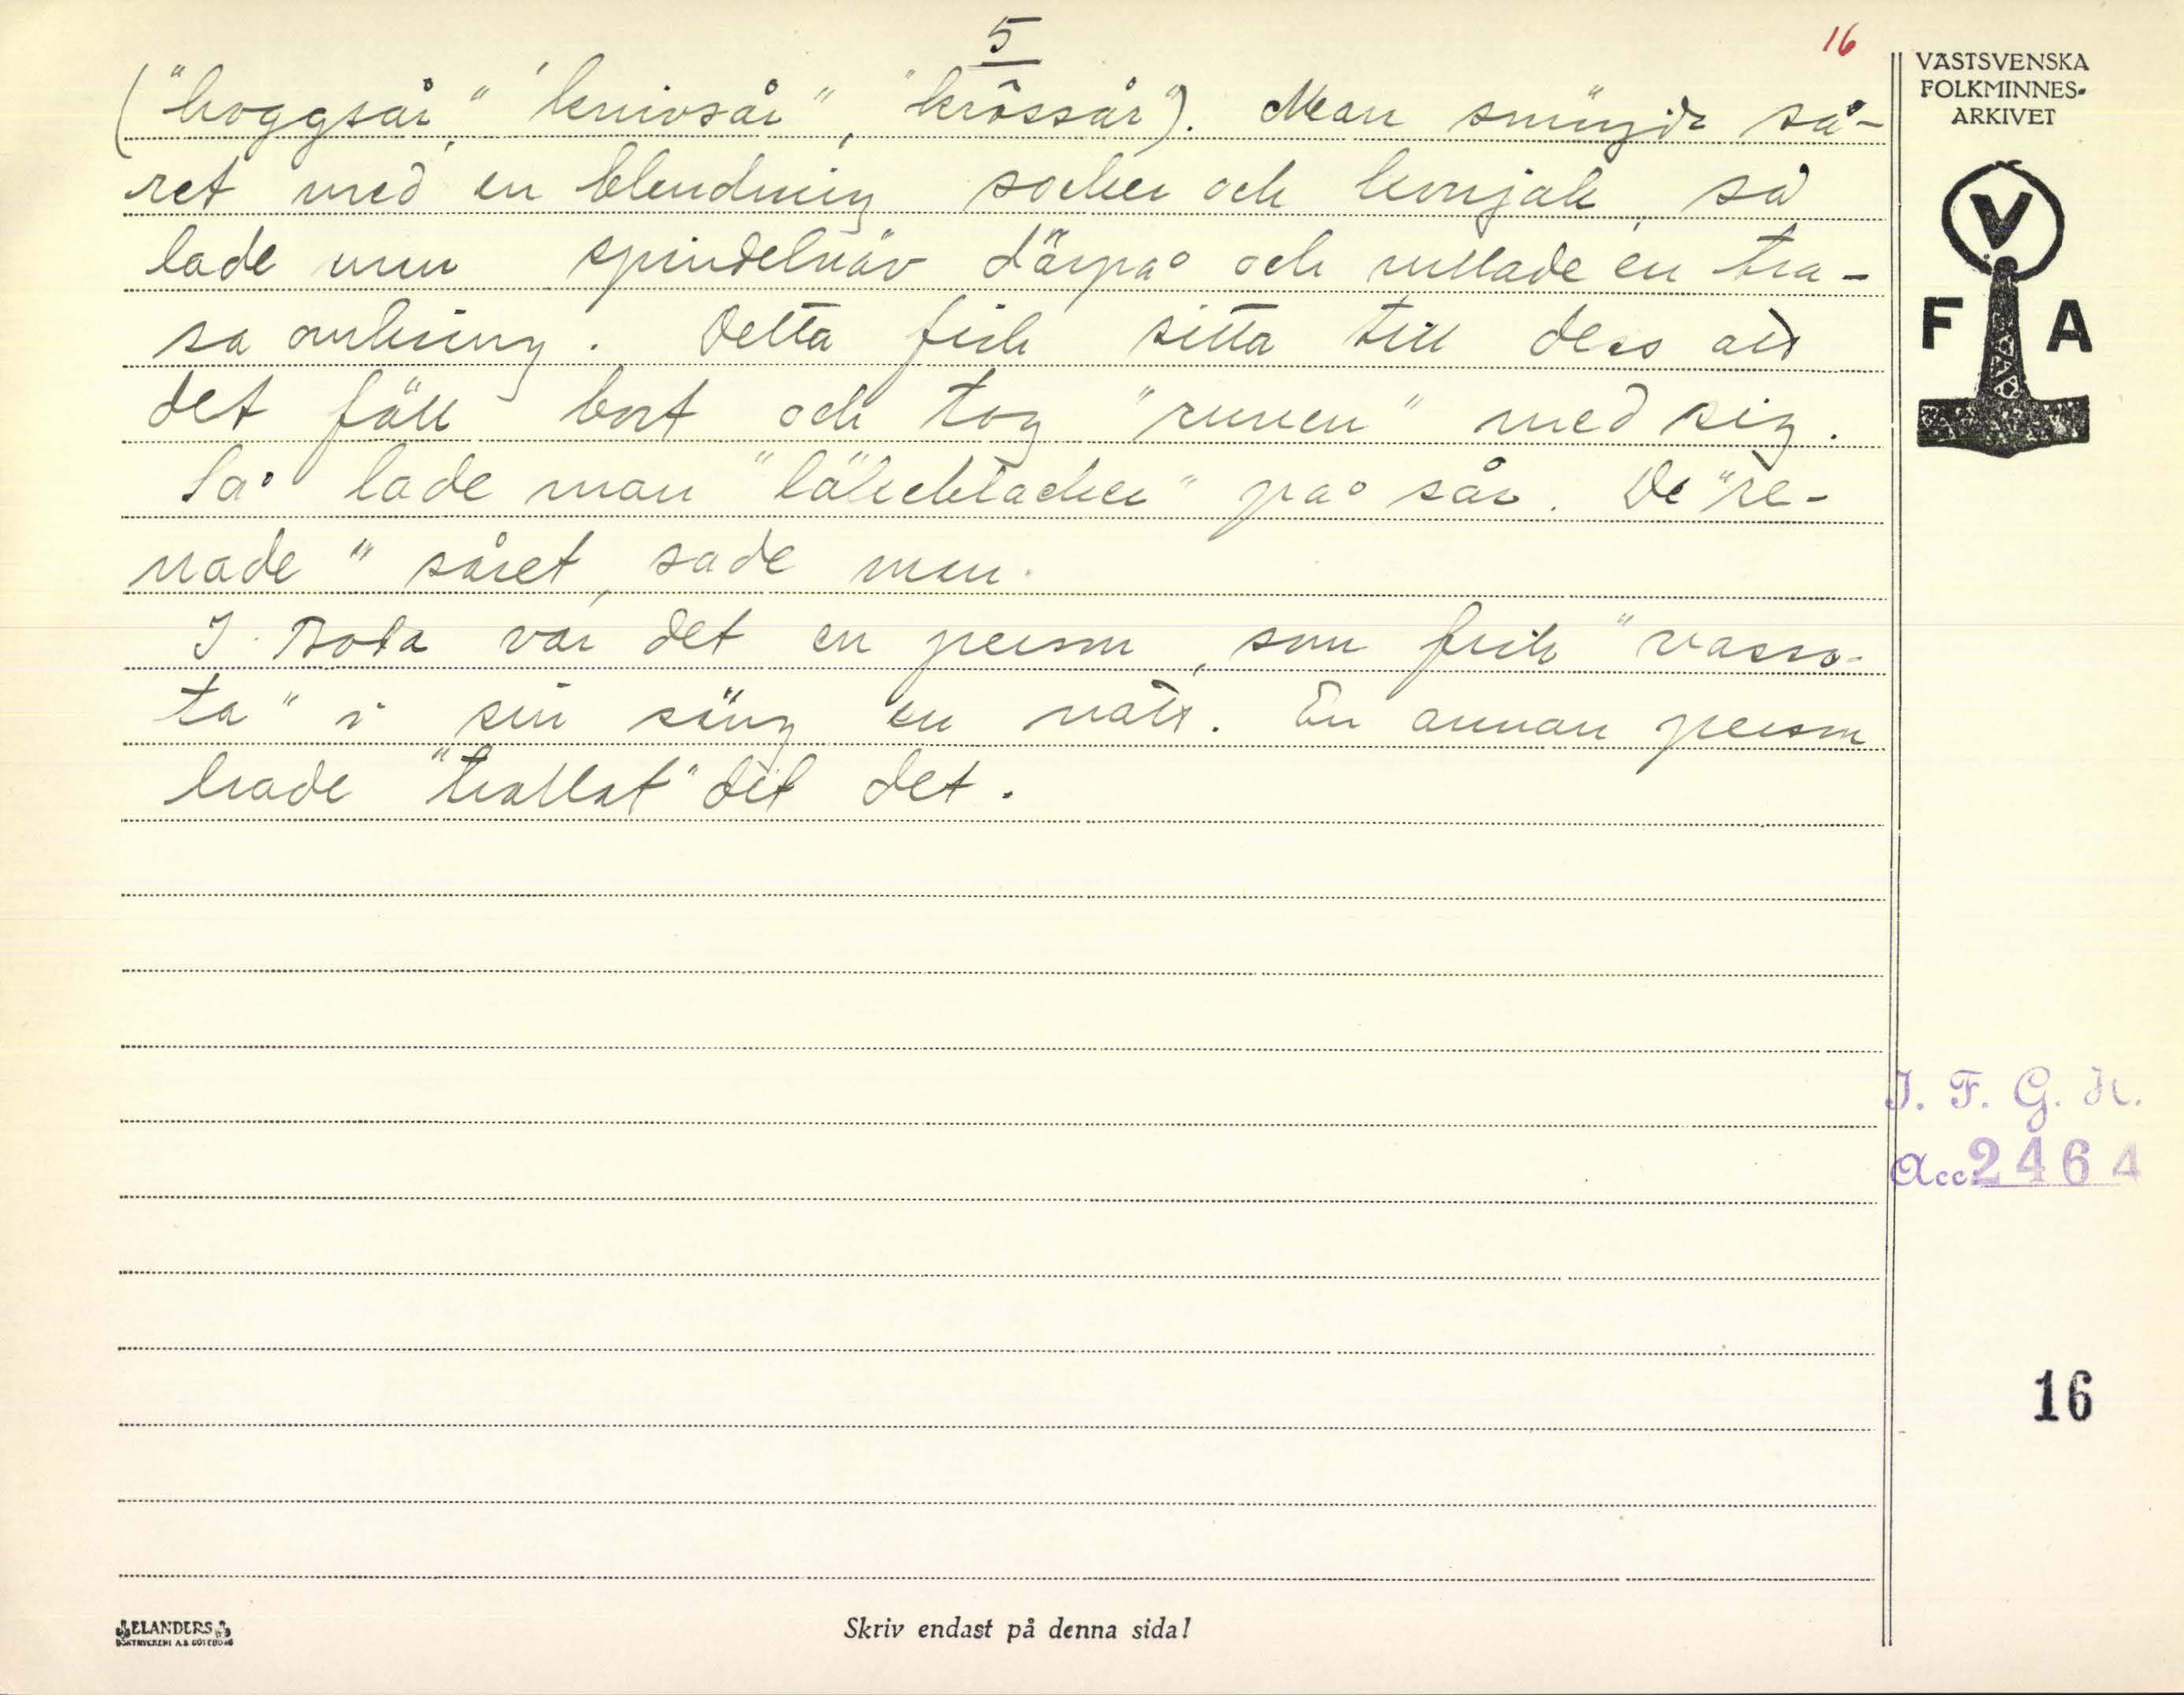 5
16
("hoggsår", "knivsår", "krössår"). Man smörjde så-
ret med en blandning socker och konjak, så
lade man spindelnäv därpå och rullade en tra-
sa omkring. Detta fick sitta till dess att
det föll bort och tog "ruven" med sig.
Så lade man "läkeblacker" på sår. De "re-
nade" såret, sade man.
I Boda var det en person, som fick "vasso-
ta" i sin säng en natt. En annan person
hade "trollat" dit det.
VÄSTSVENSKA
FOLKMINNES-
ARKIVET
V
F A
I. F. G. H.
Acc. 2464
16
ELANDERS
BOKTRYCKERI A.B. GÖTEBORG
Skriv endast på denna sida!